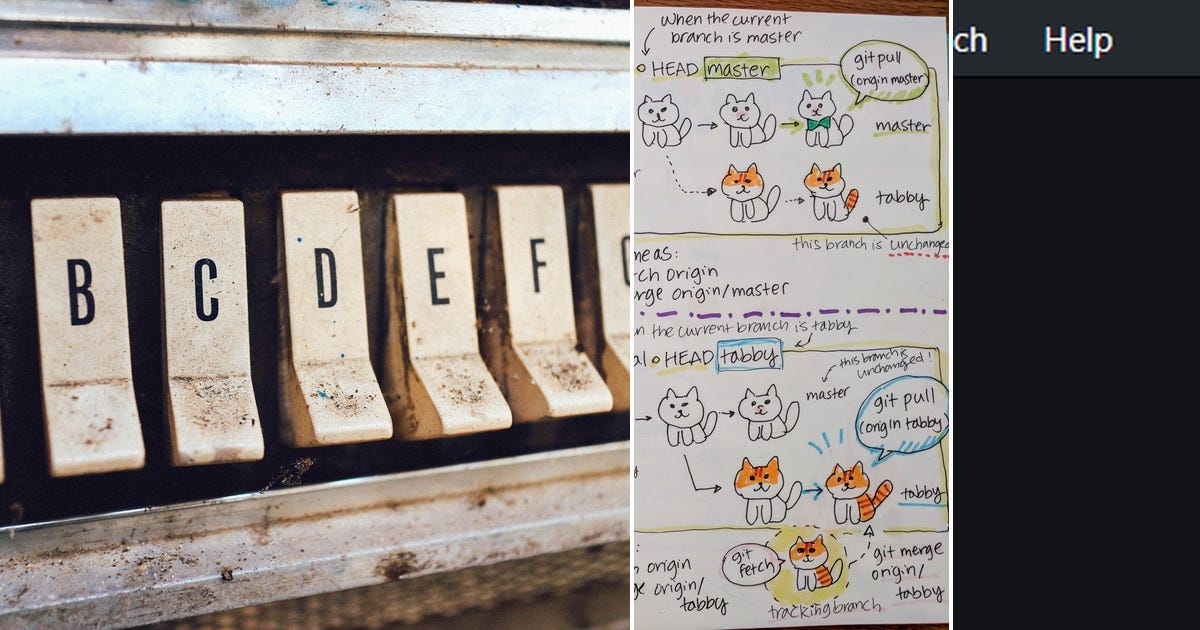 B C D E F
When the current
branch is master
HEAD master
git pull
(origin master)
master
tabby
this branch is unchanged
me as:
ch origin
rge origin/master
n the current branch is tabby
al HEAD tabby
this branch is
unchanged!
master
git pull
(origin tabby)
tabby
origin
git
fetch
git merge
e origin/
origin/
tabby
tabby
tracking branch
ch Help